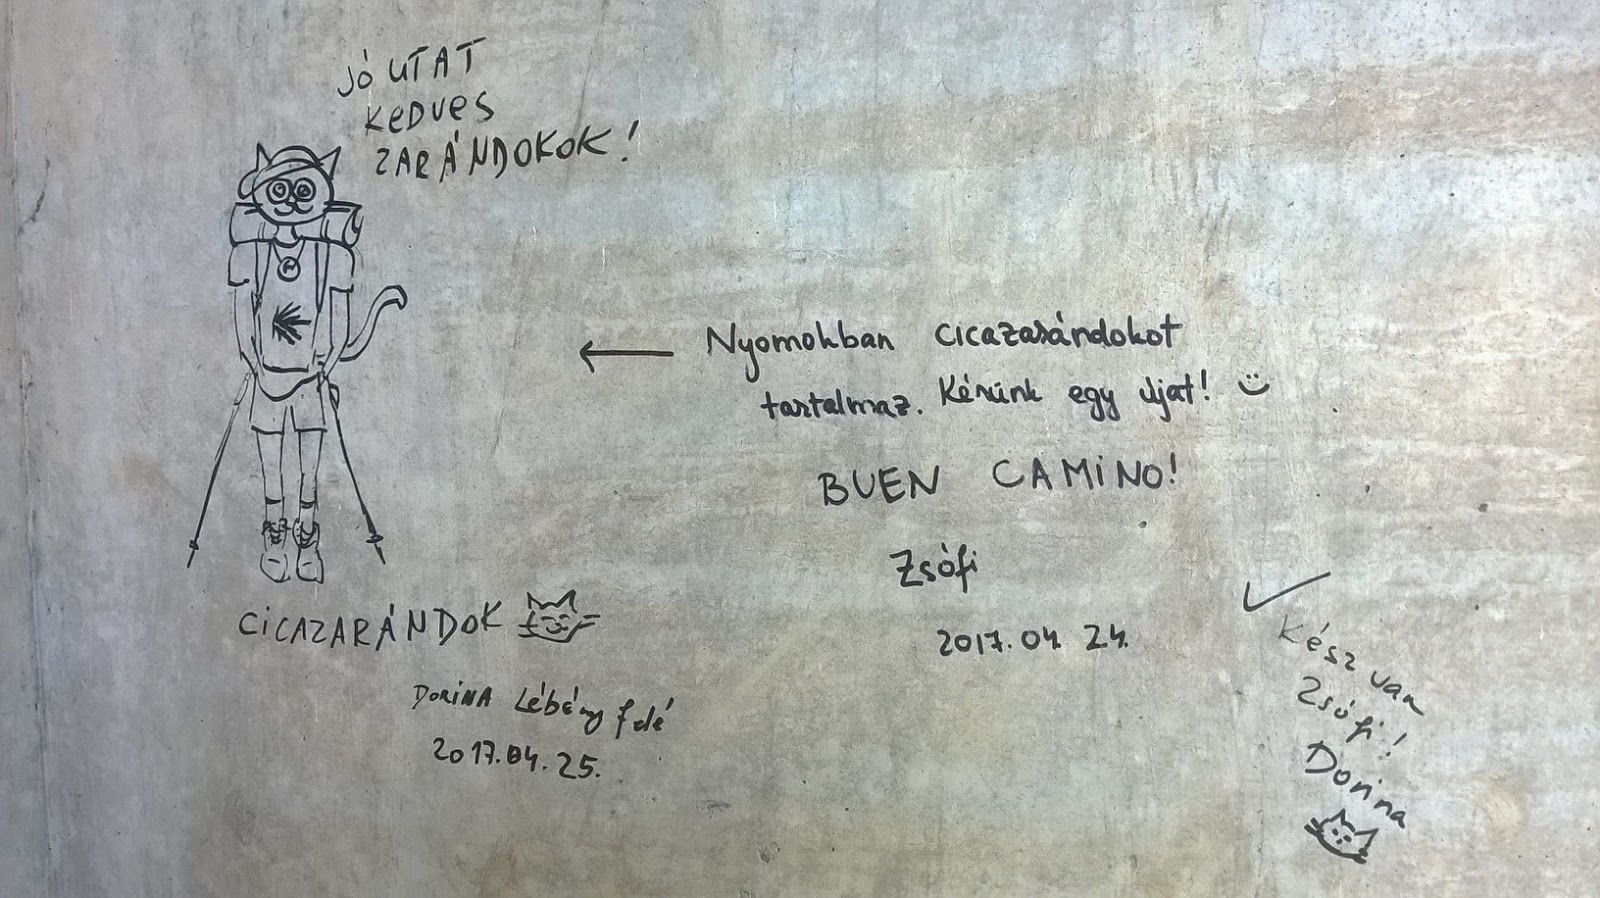 JÓ UTAT
KEDVES
ZARÁNDOKOK!
CICAZARÁNDOK
DORINA Lébény felé
2017.04.25.
Nyomokban cicazarándokot
tartalmaz. Kérünk egy újat! :)
BUEN CAMINO!
Zsófi
2017.04.24.
Kész van
Zsófi!
Dorina